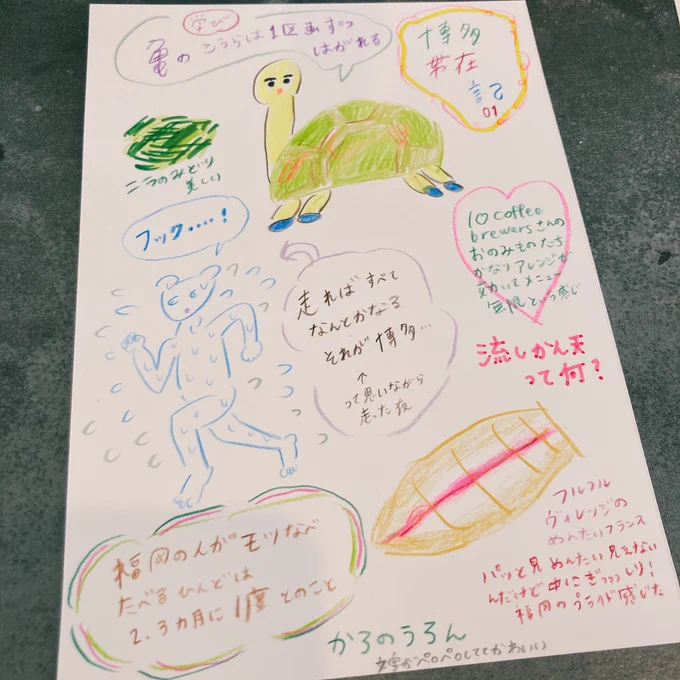 学び
亀のこうらは1区画ずつ
はがれる
博多
帯在
記
01
ニラのみどり
美しい
フッ ク....!
走ればすべて
なんとかなる
それが博多...
↑
って思いながら
走った夜
10 coffee
brewersさんの
おのみものたち
かなりアレンジが
効いてメニュー
無限という感じ
流しかん天
って何?
フルフル
ヴィレッジの
めんたいフランス
パッと見めんたい見えない
んだけど中にぎっっっしり!
福岡のプライド感じた
福岡の人がモツなべ
たべるひんどは
2、3カ月に1度とのこと
かろのうろん
文字がペロペロしててかわいい